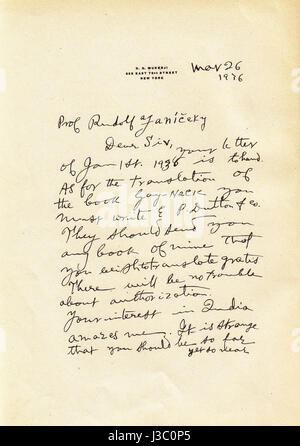 D. G. MUKERJI
325 EAST 72nd STREET
NEW YORK
Mar 26
1936
Prof Rudolf Janíčeky
Dear Sir, your letter
of Jan 1st. 1936 is to hand.
As for the translation of
the book Gay-Neck you
must write E. P. Dutton & co.
They should send you
any book of mine that
you wish to translate gratis
There will be no trouble
about authorization.
Your interest in India
amazes me. It is strange
that you should be so far
yet so near
alamy
a
a
www.alamy.com
J3C0P5